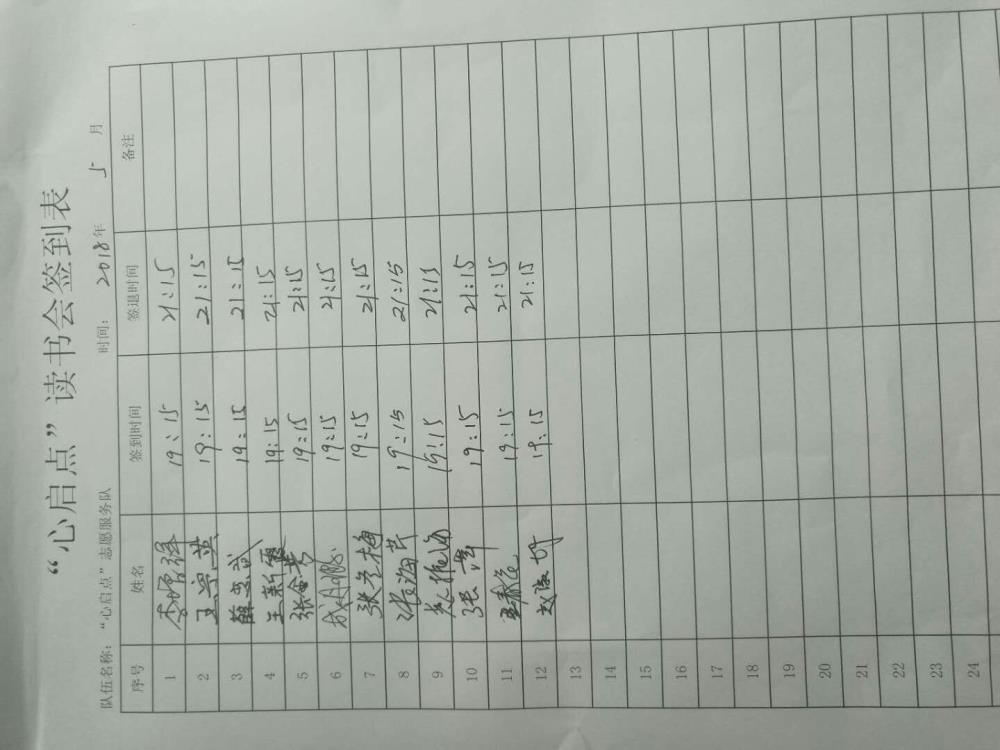 “心启点”读书会签到表
队伍名称：“心启点”志愿服务队 时间： 2018年 5 月
序号 姓名 签到时间 签退时间 备注
1 19:15 21:15
2 19:15 21:15
3 19:15 21:15
4 王新霞 19:15 21:15
5 张金芳 19:15 21:15
6 19:15 21:15
7 张冬梅 19:15 21:15
8 张海芹 19:15 21:15
9 19:15 21:15
10 张 19:15 21:15
11 19:15 21:15
12 赵淑好 19:15 21:15
13
14
15
16
17
18
19
20
21
22
23
24